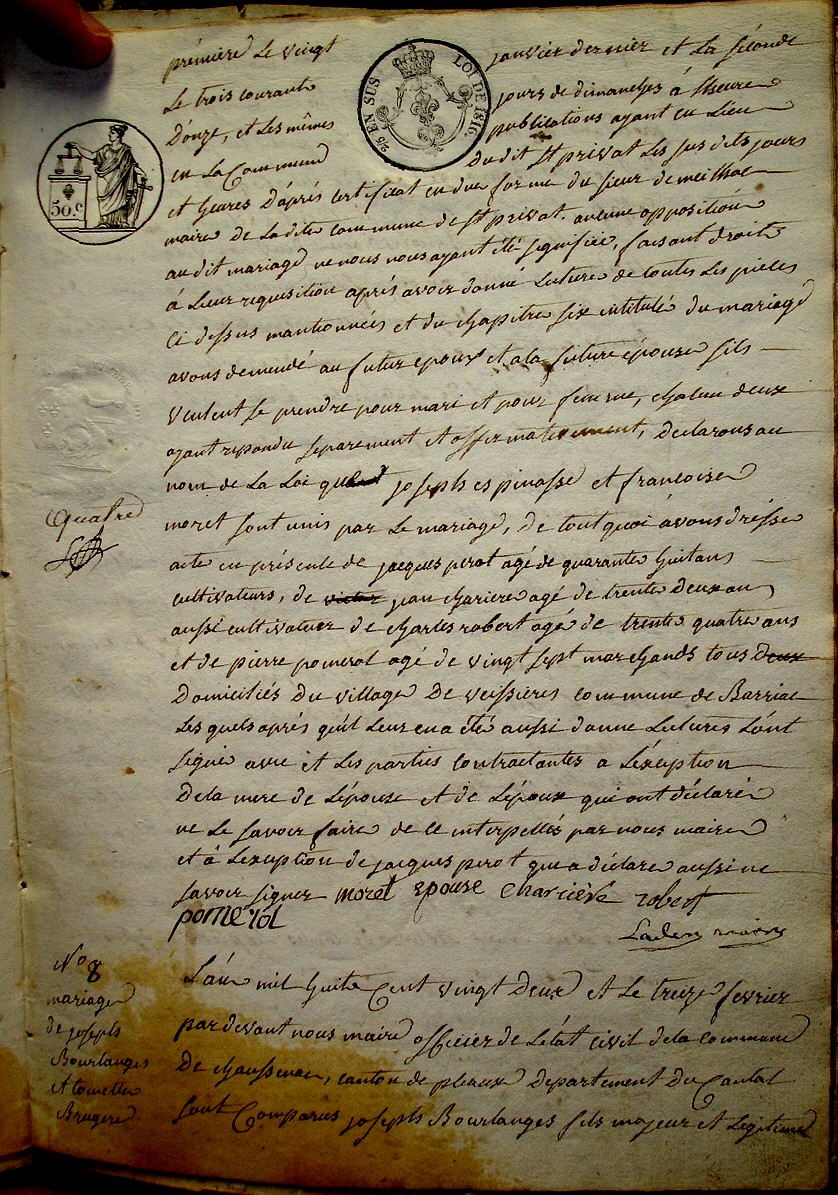 première le vingt janvier dernier et la séconde
Le trois courant jours de dimanches à Lheure
D'onze, et Les mêmes publications ayant eu Lieu
en La Commune du dit St privat Les sus dits jours
et heures D'aprés certificat en due forme du sieur de meilhac
maire de La dite commune de St privat. aucune opposition
au dit mariage ne nous nous ayant été signifiée, faisant droit
à Leur requisition aprés avoir donné Lecture de toutes Les pieces
Ci dessus mantionnées et du chapitre six intitulé du mariage
avons demendé au futur epoux et a la future épouse sils
veulent se prendre pour mari et pour femme, chacun deux
ayant repondu separement et affirmativement, declarons au
nom de La Loi que joseph espinasse et francoise
moret sont unis par Le mariage, de tout quoi avons dréssé
acte en présence de jacques perot agé de quarante huit ans
cultivateurs, de victor jean chariere agé de trente deux ans
aussi cultivateur de charles robert agé de trente quatre ans
et de pierre pomerol agé de vingt sept marchands tous deux
Domiciliés Du village De veissières commune de Barriac
Les quels aprés qu'il Leur en a été aussi donne Lectures L'ont
signé avec et Les parties contractantes a L'éxception
De la mere de L'épouse et de L'époux qui ont déclaré
ne Le savoir faire de ce interpellés par nous maire
et à L'exception de jacques perot qui a déclaré aussi ne
savoir signer moret epouse charrière robert
pomerol
Laden maire
Quatre
50.c
2/5 EN SUS LOI DE 1816
No 8
mariage
de joseph
Bourlanges
et toinette
Brugere
L'an mil huit Cent vingt Deux et Le treize fevrier
par devant nous maire officier de L'état civil de la commune
De chaussenac, canton de pleaux Departement Du Cantal
sont Comparus joseph Bourlanges fils majeur et Légitime